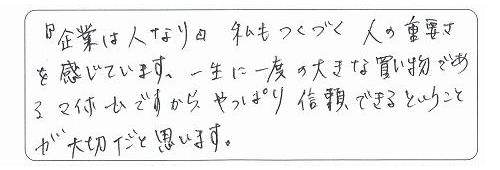 『企業は人なり』 私もつくづく 人の重要さ
を感じています。一生に一度の大きな買い物であ
るマイホームですから やっぱり 信頼できるということ
が 大切だと思います。